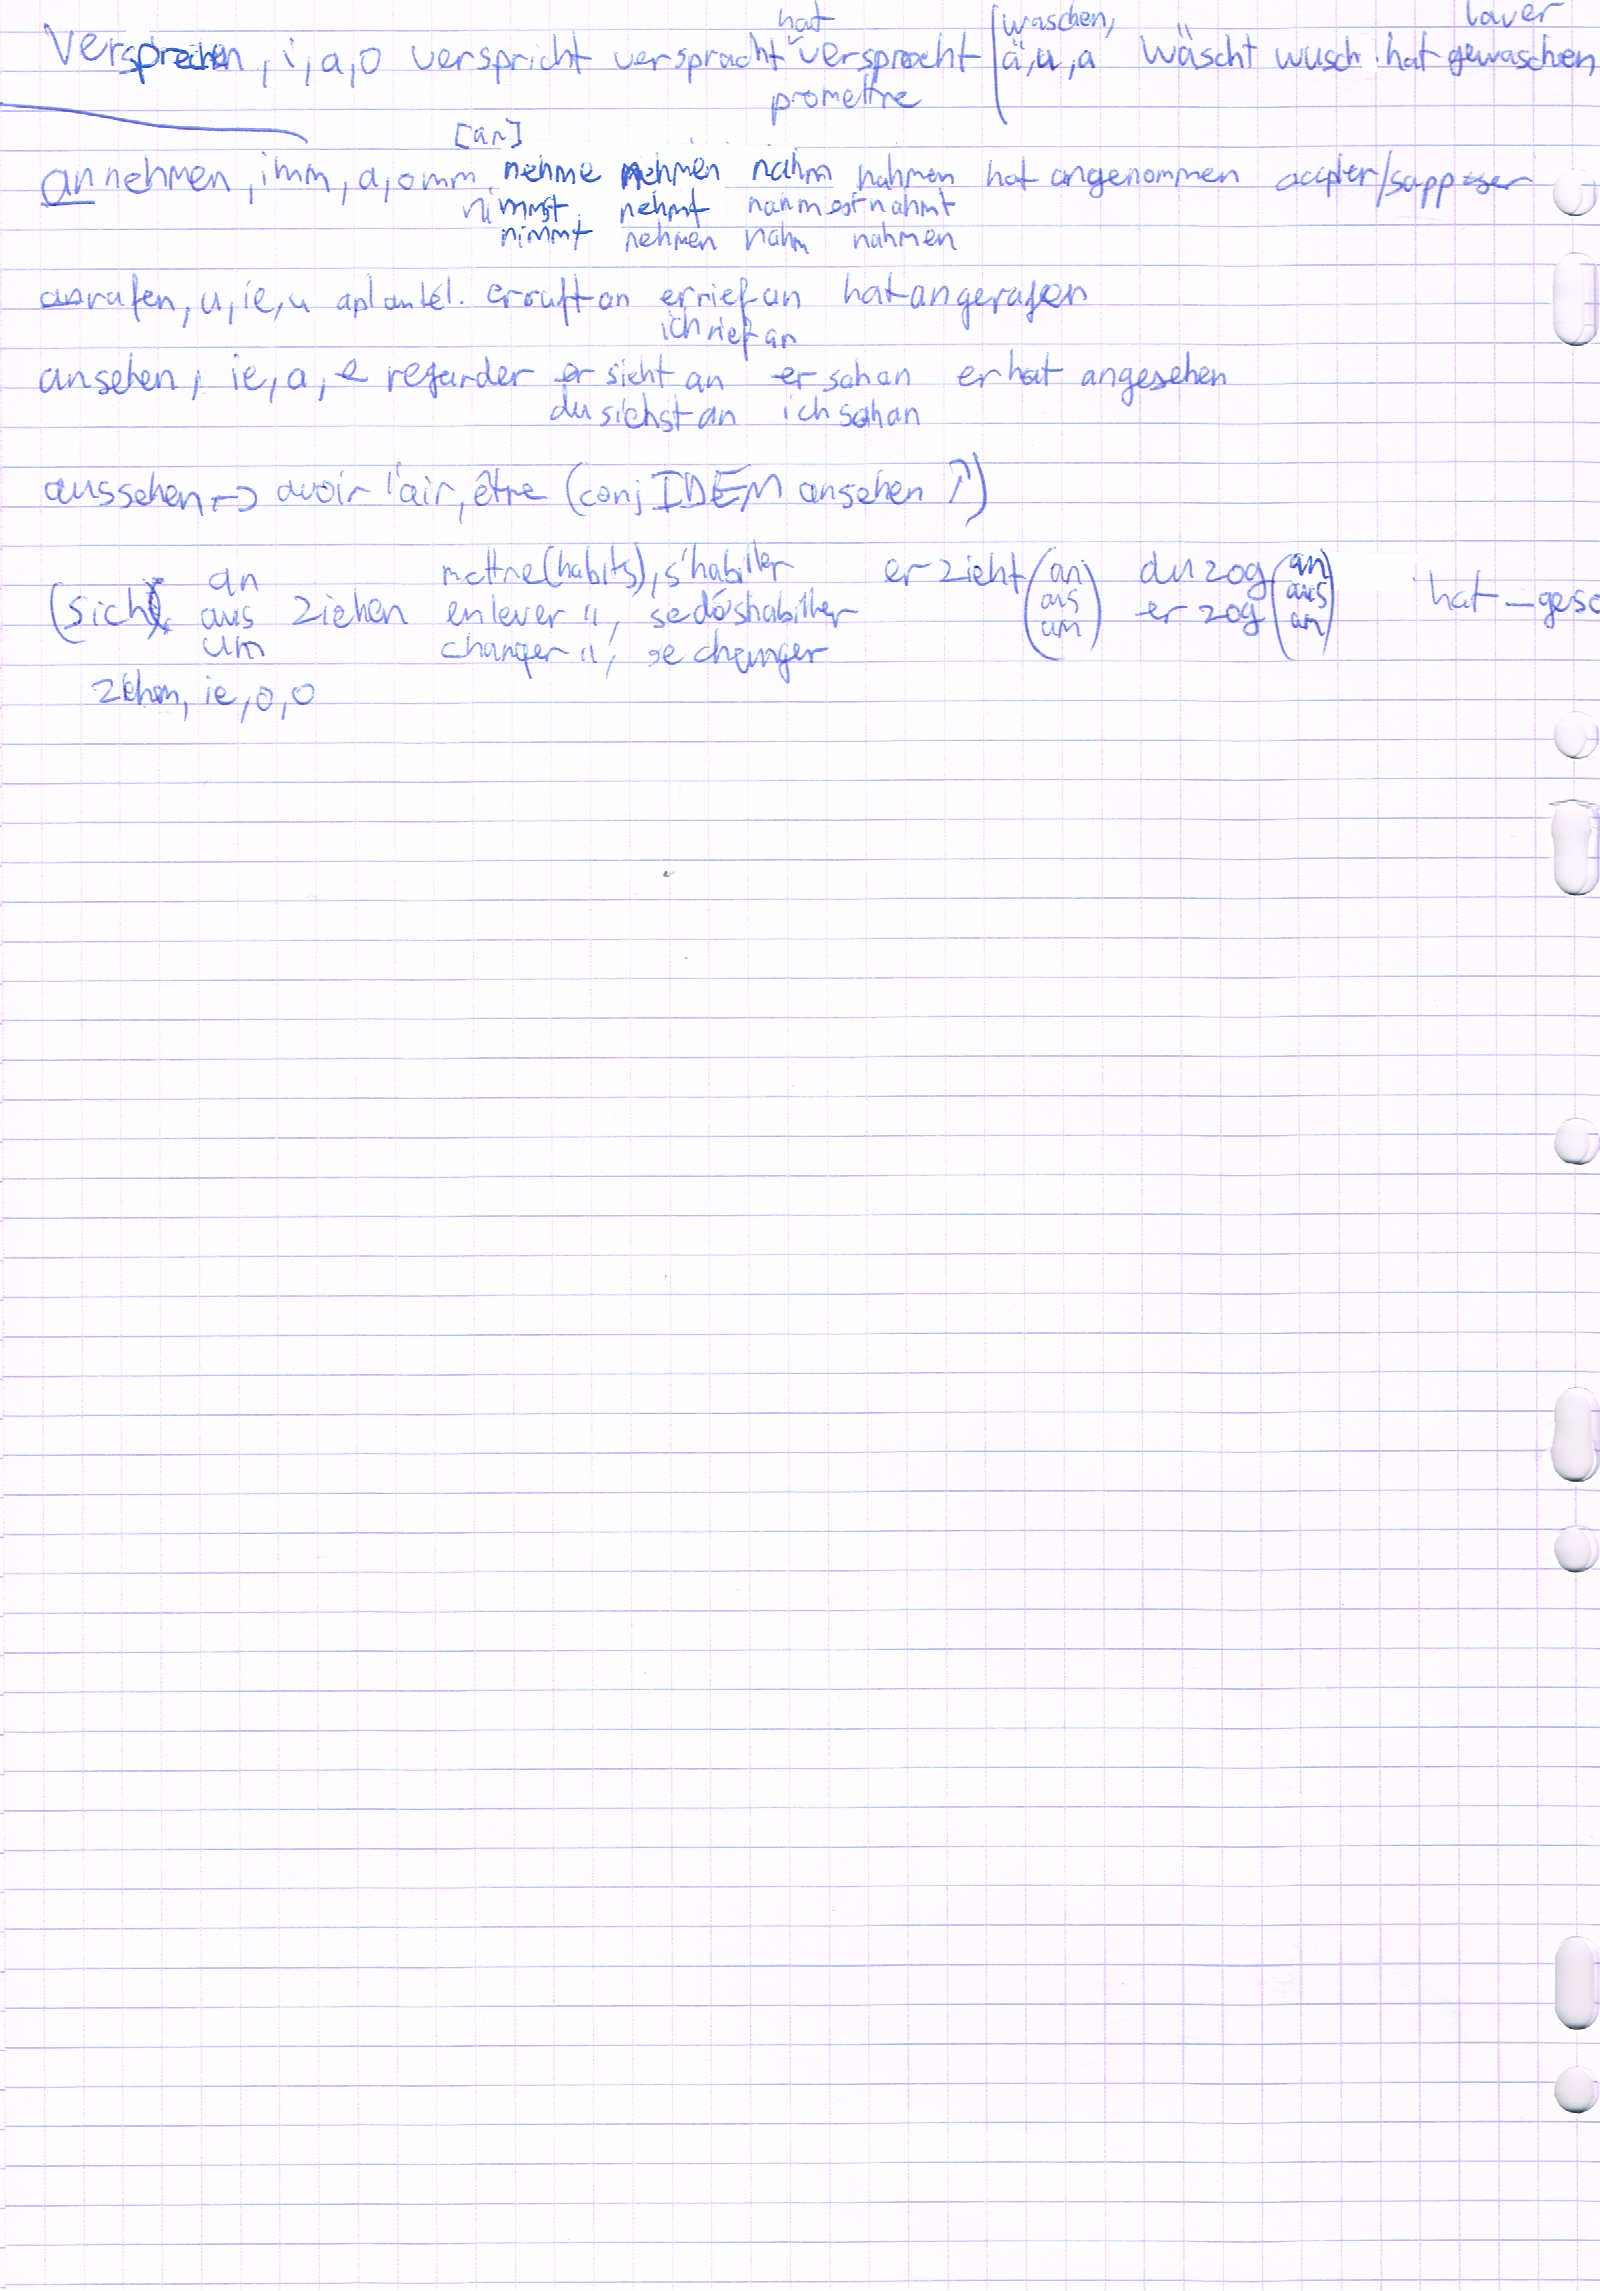 hat waschen, laver
Versprechen, i, a, o verspricht verspracht versprocht ä, u, a wäscht wusch hat gewaschen
promettre
[an]
annehmen, imm, a, omm nehme nehmen nahm nahmen hat angenommen accepter/supposer
nimmst nehmt nahmest nahmt
nimmt nehmen nahm nahmen
anrufen, u, ie, u tél. er ruft an er rief an hat angerufen
ich rief an
ansehen, ie, a, e regarder er sieht an er sah an er hat angesehen
du siehst an ich sah an
aussehen → avoir l'air, être (conj IDEM ansehen ↗)
an mettre (habits), s'habiller er zieht (an) du zog (an)
(sich) aus ziehen enlever ", se déshabiller aus er zog aus hat _ gezo
um changer ", se changer um um
ziehen, ie, o, o